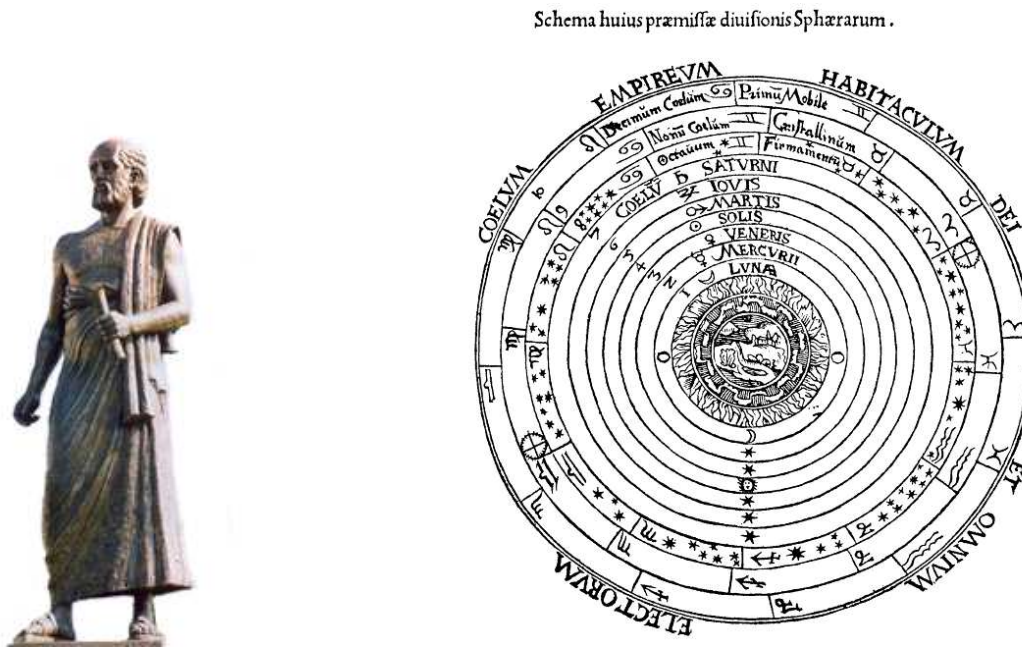 Schema huius præmissæ diuisionis Sphærarum.
COELVM EMPIREVM HABITACVLVM DEI ET OMNIVM ELECTORVM
Decimum Coelum Primū Mobile
Nonū Coelum Cristallinum
Octauum Firmamentū
COELV̄ SATVRNI
IOVIS
MARTIS
SOLIS
VENERIS
MERCVRII
LVNÆ